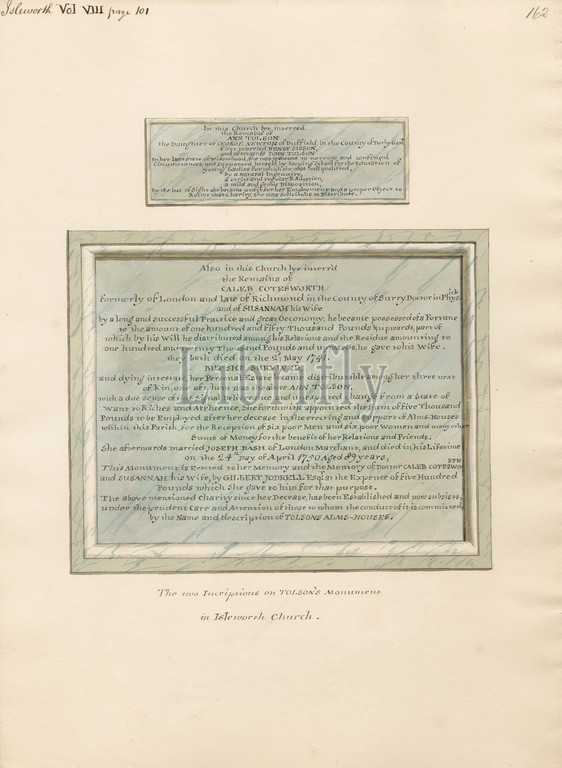 Isleworth Vol VIII page 101
162
In this Church lye interred
the Remains of
ANN TOLSON
the Daughter of GEORGE NEWTON of Duffield in the County of Derby
First married HENRY SISSON,
and afterwards JOHN TOLSON
In her Later state of Widowhood she was reduced to narrow and confined
Circumstances, and supported herself by keeping School for the Education of
young Ladies For which she was well qualified,
By a natural Ingenuity,
a strict and regular Education,
a mild and gentle Disposition,
By the loss of Sight she became unfit for her Employment and a proper Object to
Receive that Charity, she was Sollicitous to Distribute.
Also in this Church lye interr'd
the Remains of
CALEB COTESWORTH
Formerly of London and late of Richmond in the County of Surry Doctor in Physick
and of SUSANNAH his Wife
by a long and successful Practice and great Oeconomy; he became possessed of a Fortune
to the amount of one hundred and Fifty Thousand Pounds & upwards, part of
which by his Will he distributed among his Relations and the Residue amounting to
one hundred and twenty Thousand Pounds and upwards, he gave to his Wife.
they both died on the 2d May 1741.
BUT SHE SURVIVED
and dying intestate, her Personal Estate became distributable among her three next
of Kin, one of whom was the above ANN TOLSON,
with a due sense of this Deliverance and unexpected change from a State of
Want to Riches and Affluence, She forthwith appointed the sum of Five Thousand
Pounds to be Employed after her decease in the erecting and support of Alms-Houses
within this Parish, for the Reception of Six poor Men and six poor Women and many other
Sums of Money for the benefit of her Relations and Friends.
She afterwards married JOSEPH DASH of London Merchant, and died in his Lifetime
on the 24th Day of April 1750 Aged 89 years,
This Monument is Erected to her Memory and the Memory of Doctor CALEB COTESWORTH
and SUSANNAH his Wife, by GILBERT JODRELL Esqr. at the Expence of Five Hundred
Pounds which She gave to him for that purpose.
The above mentioned Charity since her Decease, has been Established and now subsists,
under the prudent Care and Attention of those to whom the conduct of it is committed,
by the Name and description of TOLSONS ALMS-HOUSES.
Librifly
The two Incriptions on TOLSON'S Monument
in Isleworth Church.